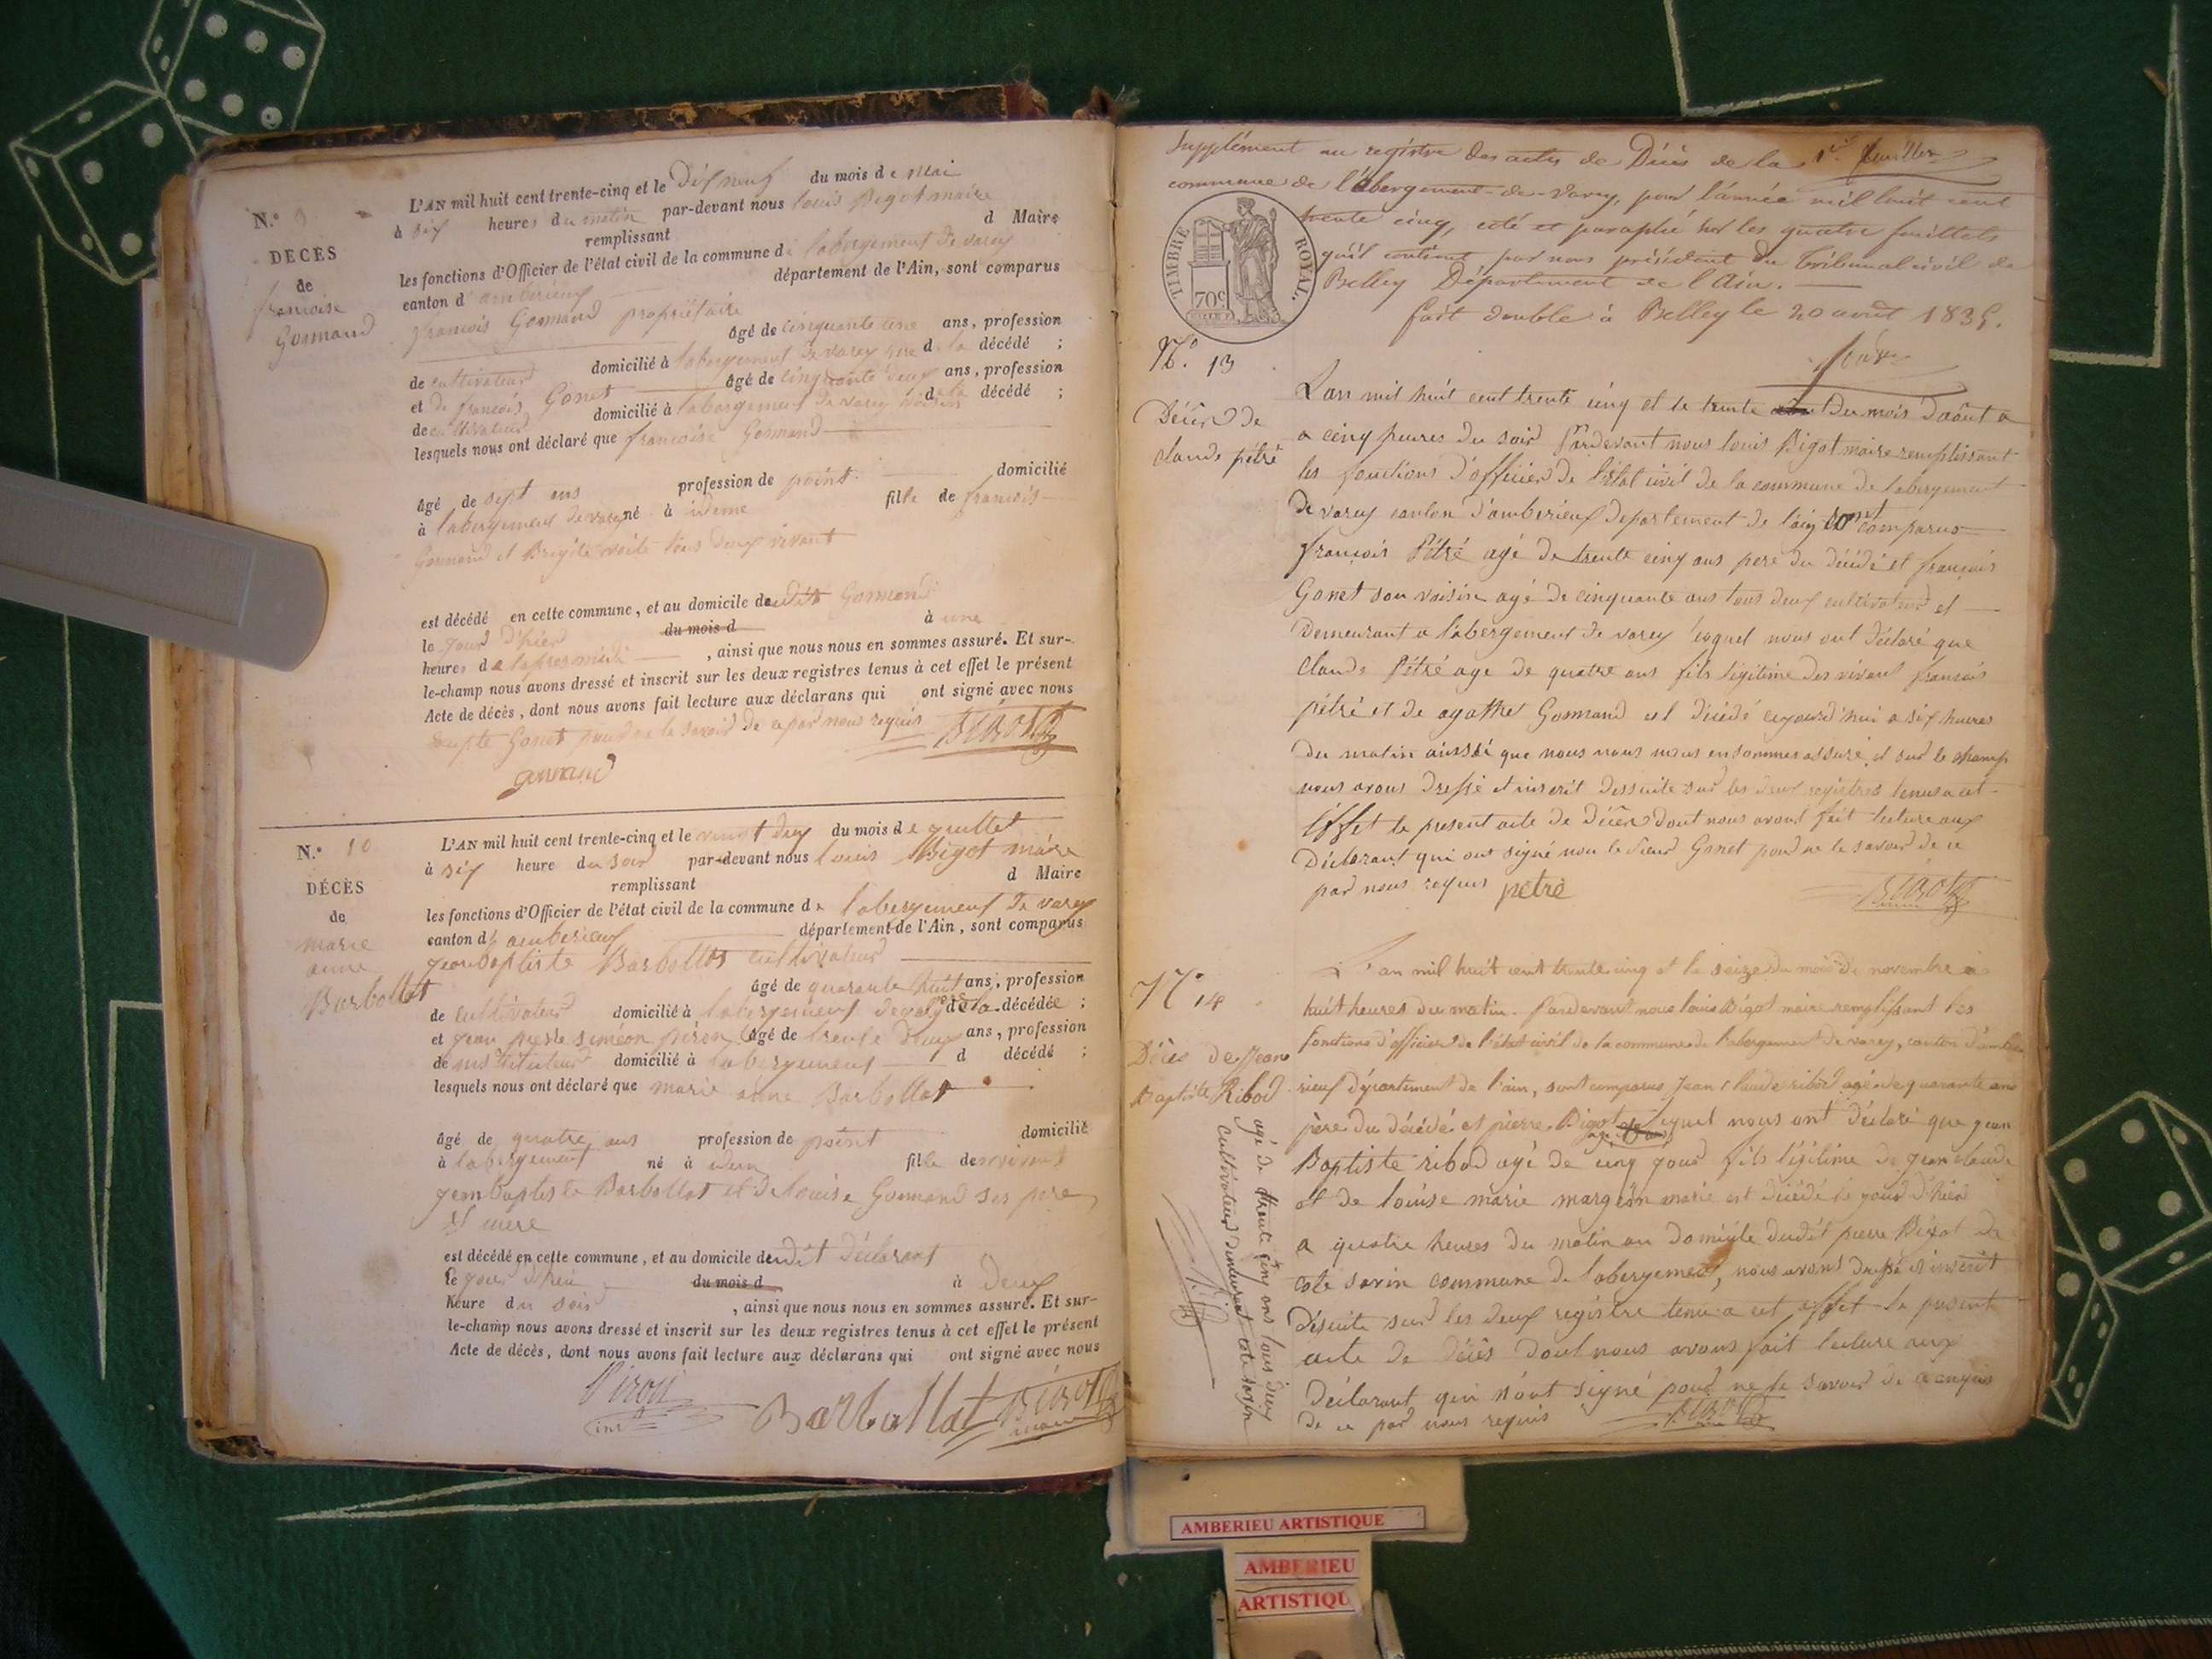 N.° 9
DECÈS
de
francoise
Gormand
L'AN mil huit cent trente-cinq et le Dix neuf du mois de Mai
à six heures du matin par-devant nous louis Bigot maire
remplissant d Maire
les fonctions d'Officier de l'état civil de la commune de labergement de varey
canton d'amberieux département de l'Ain, sont comparus
francois Gormand propriétaire
âgé de cinquante une ans, profession
de cultivateur domicilié à labergement de varey pere de la décédé ;
et de francois Gonet âgé de cinquante deux ans, profession
de cultivateur domicilié à labergement de varey voisin de la décédé ;
lesquels nous ont déclaré que francoise Gormand
âgé de sept ans profession de point domicilié
à labergement de varey né à idem fille de francois
Gormand et Brigite tous deux vivant
est décédé en cette commune, et au domicile dudit Gormand
le jour d'hier du mois d à une
heures de lapresmidi , ainsi que nous nous en sommes assuré. Et sur-
le-champ nous avons dressé et inscrit sur les deux registres tenus à cet effet le présent
Acte de décès, dont nous avons fait lecture aux déclarans qui ont signé avec nous
Gonet pour ne le savoir de ce par nous requis BIGOT
N.° 10
DÉCÈS
de
marie
anne
Barbollat
L'AN mil huit cent trente-cinq et le vingt deux du mois de juillet
à six heure du soir par-devant nous louis Bigot maire
remplissant d Maire
les fonctions d'Officier de l'état civil de la commune de labergement de varey
canton d'amberieux département de l'Ain, sont comparus
jean baptiste Barbollat cultivateur
âgé de quarante huit ans, profession
de cultivateur domicilié à labergement de varey de la décédée ;
et jean siméon piron âgé de trente deux ans, profession
de instituteur domicilié à labergement d décédé ;
lesquels nous ont déclaré que marie anne Barbollat
âgé de quatre ans profession de point domicilié
à labergement né à idem fille des vivant
jean baptiste Barbollat et de louise Gormand ses pere
et mere
est décédé en cette commune, et au domicile dudit déclarant
le jour d'hier du mois d à deux
heure du soir , ainsi que nous nous en sommes assuré. Et sur-
le-champ nous avons dressé et inscrit sur les deux registres tenus à cet effet le présent
Acte de décès, dont nous avons fait lecture aux déclarans qui ont signé avec nous
Piron
Barbollat BIGOT
Supplément au registre des actes de Décès de la 1er feuillet
commune de l'abergement-de-varey, pour l'année mil huit cent
trente cinq, coté et paraphé sur les quatre feuillets
qu'il contient par nous président du Tribunal civil de
Belley Département de l'Ain.
fait double à Belley le 20 août 1835.
TIMBRE ROYAL.
70c
N.° 13
Décès de
claude pétré
L'an mil huit cent trente cinq et le trente du mois d'août a
a cinq heures du soir Pardevant nous louis Bigot maire remplissant
les fonctions d'officier de l'état civil de la commune de labergement
de varey canton d'amberieux departement de l'ain sont comparus
françois Pétré agé de trente cinq ans pere du décédé et françois
Gonet son voisin agé de cinquante ans tous deux cultivateur et
demeurant a l'abergement de varey lesquel nous ont déclaré que
claude Pétré age de quatre ans fils légitime des vivant francois
pétré et de agathe Gormand est décédé cejourd'hui a six heures
du matin ainsi que nous nous nous en sommes assuré et sur le champ
nous avons dressé et inscrit dessuite sur les deux registres tenus a cet
effet le present acte de décès dont nous avons fait lecture aux
Déclarant qui ont signé non le sieur Gonet pour ne le savoir de ce
par nous requis petre BIGOT
N.° 14
Décès de Jean
Baptiste Ribod
L'an mil huit cent trente cinq et le seize du mois de novembre à
huit heures du matin. Pardevant nous louis Bigot maire remplissant les
fonctions d'officier de l'état civil de la commune de labergement de varey, canton d'ambé
rieux département de l'ain, sont comparus Jean claude ribod agé de quarante ans
père du décédé et pierre Bigot lequel nous ont déclaré que jean
Baptiste ribod agé de cinq jour fils légitime de jean claude
et de louise marie margeon marié est décédé le jour d'hier
a quatre heures du matin au domicile dudit pierre Bigot de
cote savin commune de labergement, nous avons dressé et inscrit
désuite sur les deux registre tenu a cet effet le present
acte de décès dont nous avons fait lecture aux
Déclarant qui n'ont signé pour ne le savoir de ce enquis
de ce par nous requis BIGOT
agé de trente cinq ans tous deux
cultivateur demeurant cote savin
AMBERIEU ARTISTIQUE
AMBERIEU
ARTISTIQU